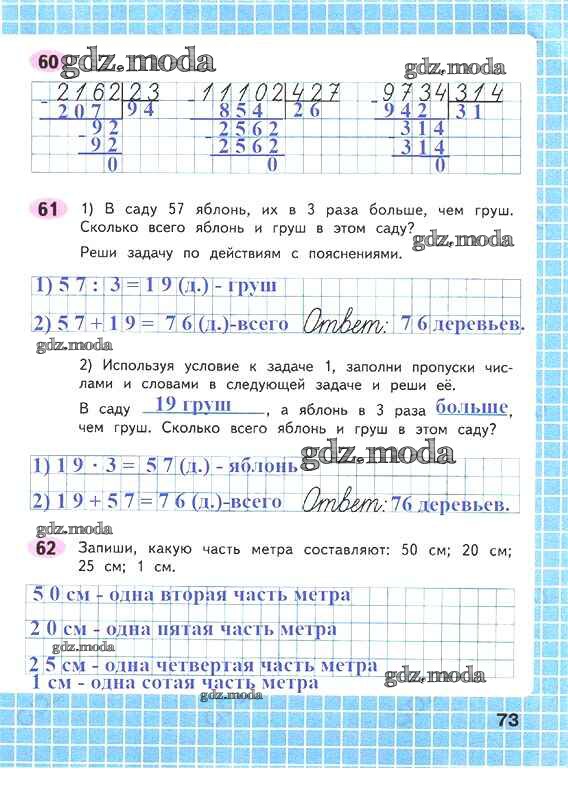 60 gdz.moda
gdz.moda
2162 23 11102 427 9734 314
- 207 94 - 854 26 - 942 31
- 92 - 2562 - 314
92 2562 314
0 0 0
61 1) В саду 57 яблонь, их в 3 раза больше, чем груш.
Сколько всего яблонь и груш в этом саду?
gdz.moda
Реши задачу по действиям с пояснениями.
1) 57 : 3 = 19 (д.) - груш
2) 57 + 19 = 76 (д.)-всего Ответ: 76 деревьев.
gdz.moda
2) Используя условие к задаче 1, заполни пропуски чис-
лами и словами в следующей задаче и реши её.
В саду 19 груш , а яблонь в 3 раза больше,
чем груш. Сколько всего яблонь и груш в этом саду?
gdz.moda
1) 19 · 3 = 57 (д.) - яблонь
2) 19 + 57 = 76 (д.)-всего Ответ: 76 деревьев.
gdz.moda
62 Запиши, какую часть метра составляют: 50 см; 20 см;
25 см; 1 см.
50 см - одна вторая часть метра
20 см - одна пятая часть метра
gdz.moda
25 см - одна четвертая часть метра
gdz.moda
1 см - одна сотая часть метра
gdz.moda
73